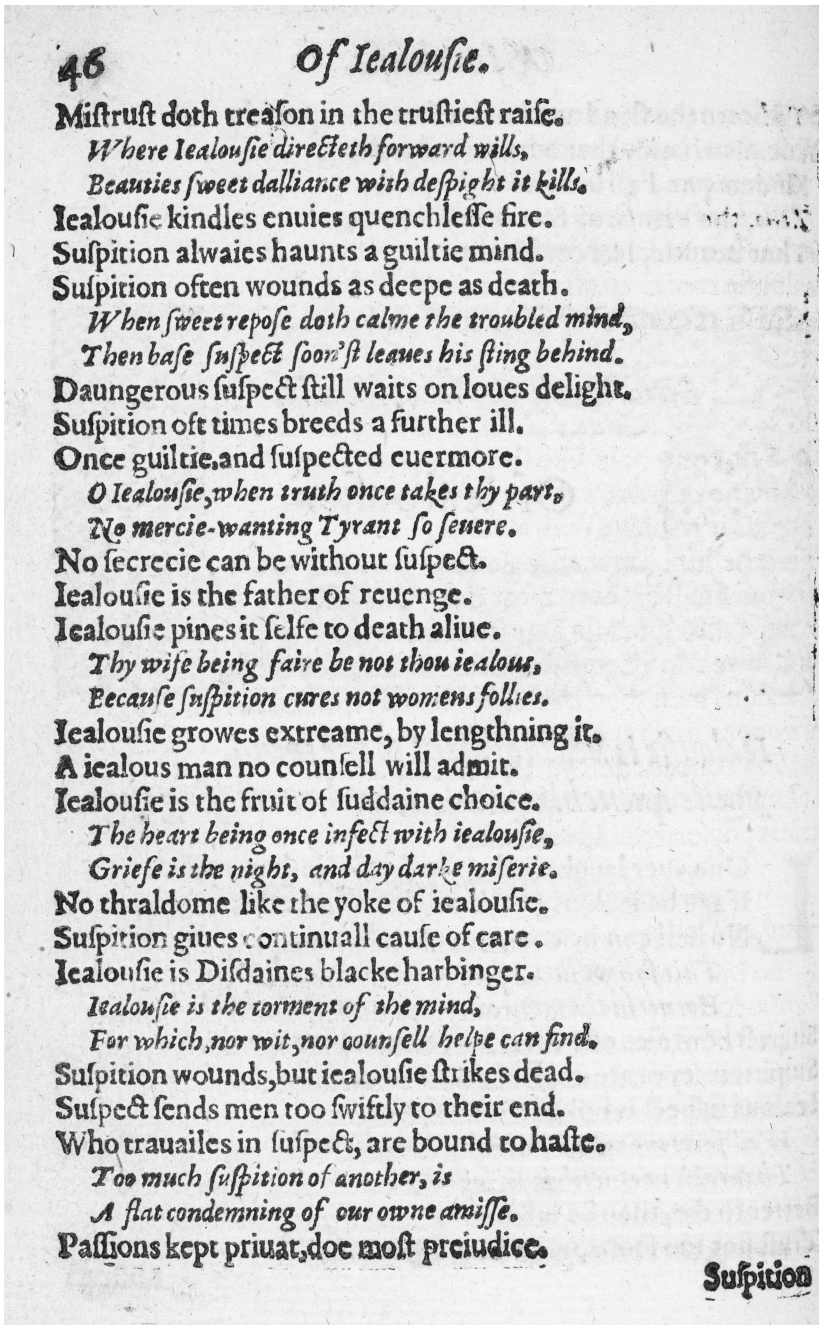 46 Of Iealousie.
Mistrust doth treason in the trustiest raise.
Where Iealousie directeth forward wills,
Beauties sweet dalliance with despight it kills.
Iealousie kindles enuies quenchlesse fire.
Suspition alwaies haunts a guiltie mind.
Suspition often wounds as deepe as death.
When sweet repose doth calme the troubled mind,
Then base suspect soon'st leaues his sting behind.
Daungerous suspect still waits on loues delight.
Suspition oft times breeds a further ill.
Once guiltie, and suspected euermore.
O Iealousie, when truth once takes thy part,
No mercie-wanting Tyrant so seuere.
No secrecie can be without suspect.
Iealousie is the father of reuenge.
Iealousie pines it selfe to death aliue.
Thy wife being faire be not thou iealous,
Because suspition cures not womens follies.
Iealousie growes extreame, by lengthning it.
A iealous man no counsell will admit.
Iealousie is the fruit of suddaine choice.
The heart being once infect with iealousie,
Griefe is the night, and day darke miserie.
No thraldome like the yoke of iealousie.
Suspition giues continuall cause of care.
Iealousie is Disdaines blacke harbinger.
Iealousie is the torment of the mind,
For which, nor wit, nor counsell helpe can find.
Suspition wounds, but iealousie strikes dead.
Suspect sends men too swiftly to their end.
Who trauailes in suspect, are bound to haste.
Too much suspition of another, is
A flat condemning of our owne amisse.
Passions kept priuat, doe most preiudice.
Suspition